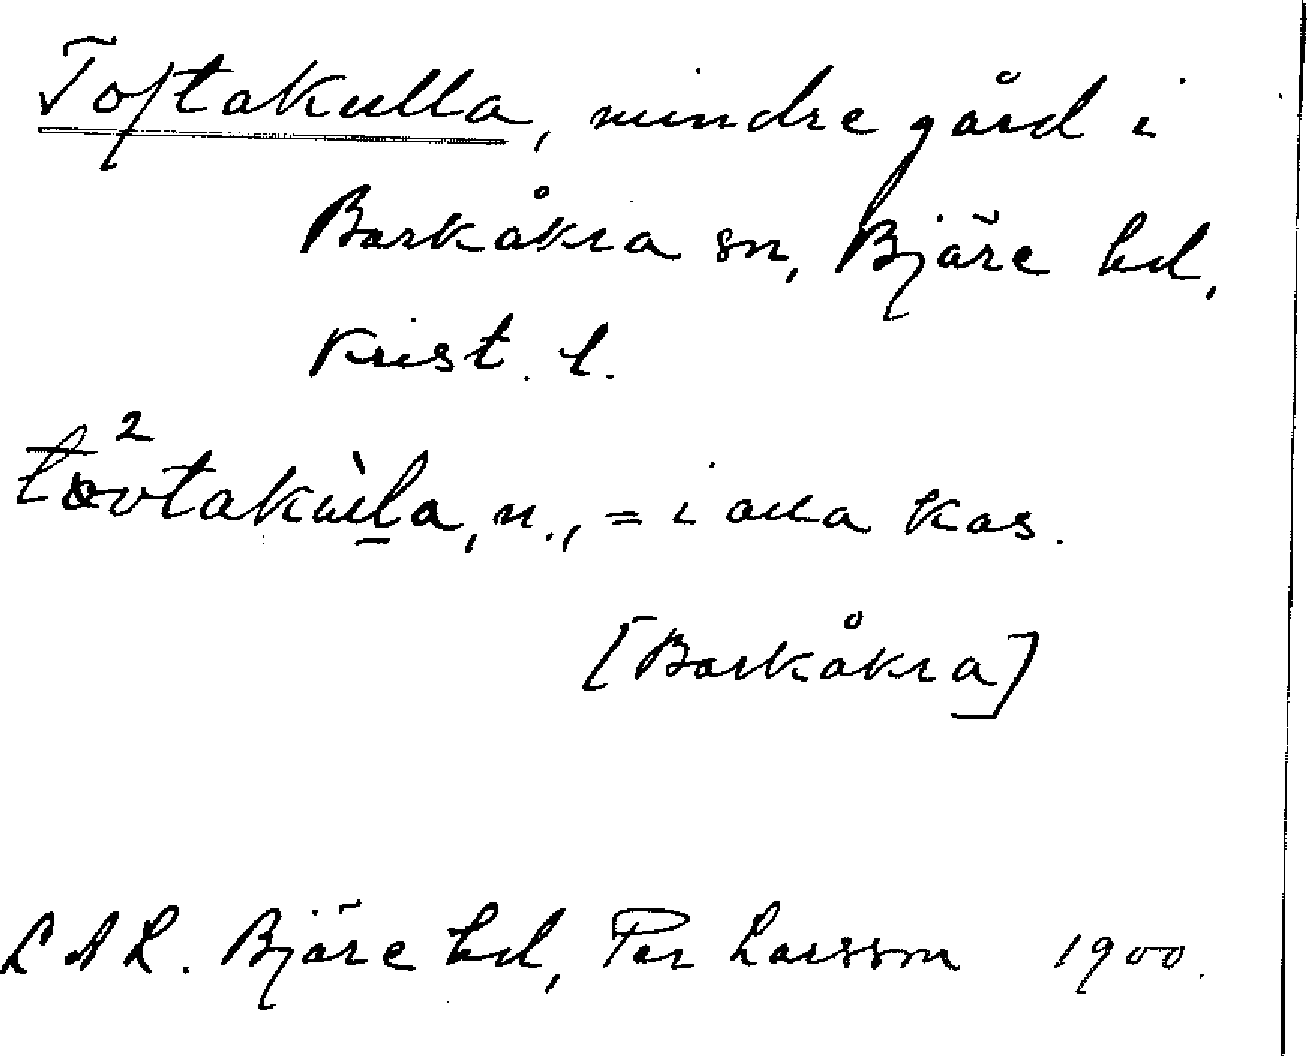 Toftakulla, mindre gård i
Barkåkra sn, Bjäre hd,
Krist. l.
n., = i alla kas.
[Barkåkra]
L A L. Bjäre hd, Per Larsson 1900.